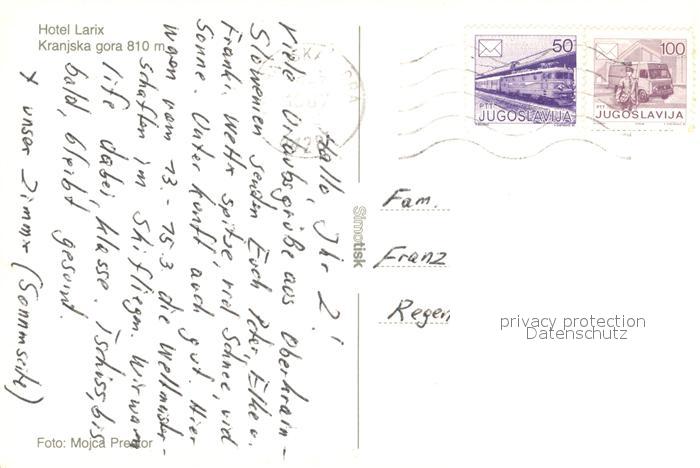 Hotel Larix
Kranjska gora 810 m
Hallo, Ihr 2!
Viele Urlaubsgrüße aus Oberkrain-
Slowenien senden Euch Peter, Elke u.
Frank. Wetter spitze, viel Schnee, viel
Sonne. Unterkunft auch gut. Hier
waren vom 13. - 15.3. die Weltmeister-
schaften im Skifliegen. Wir waren
life dabei, klasse. Tschüss, bis
bald, bleibt gesund.
x unser Zimmer (Sonnenseite)
Foto: Mojca Prestor
Simotisk
50
PTT
JUGOSLAVIJA
100
PTT
JUGOSLAVIJA
Fam.
Franz
Regen
privacy protection
Datenschutz